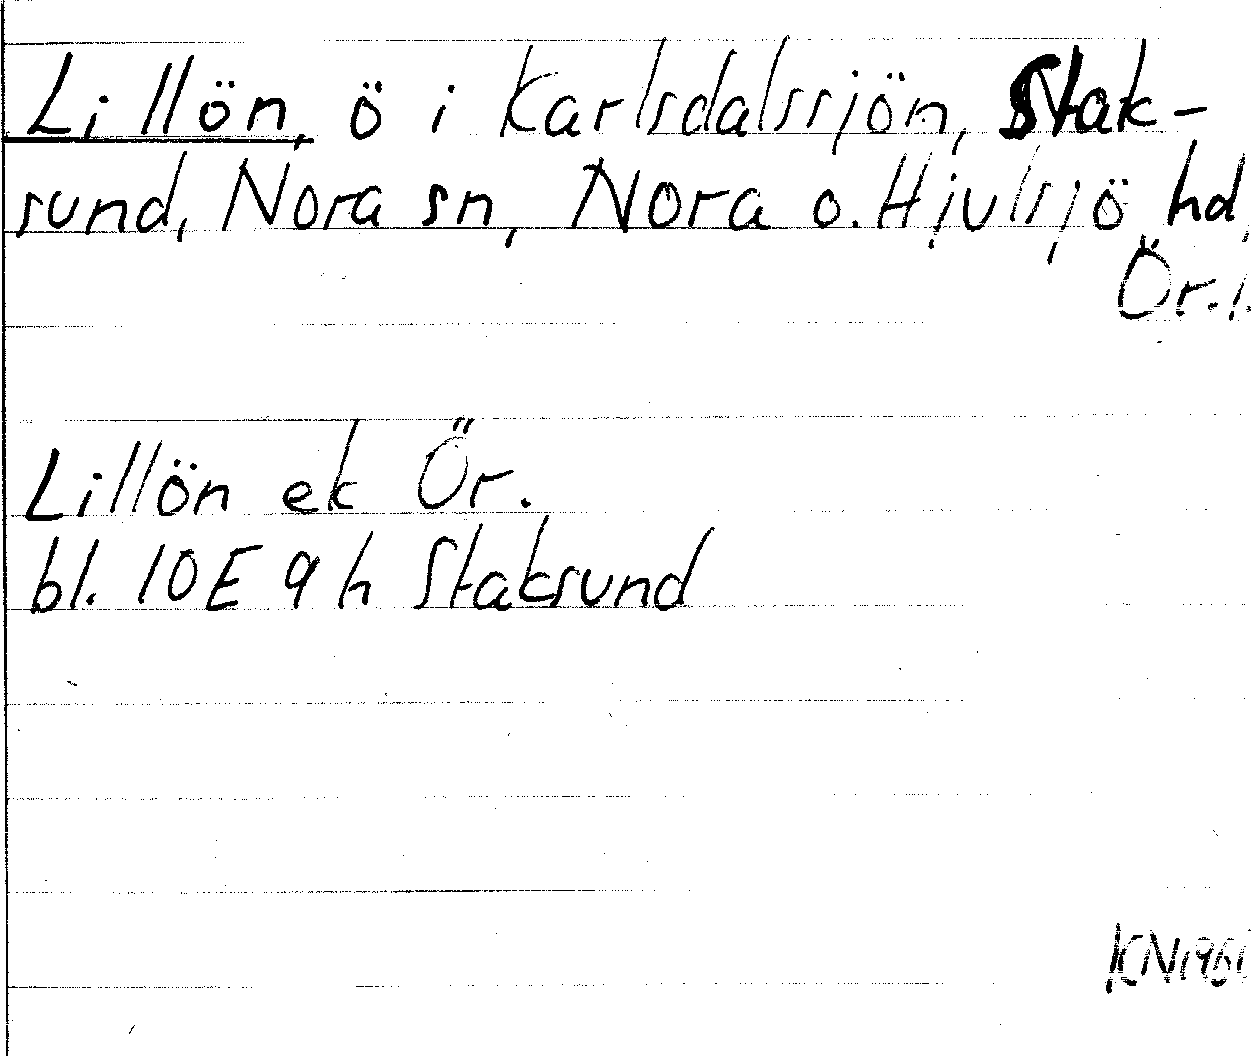 Lillön, ö i Karlsdalssjön, Stak-
sund, Nora sn, Nora o. Hjulsjö hd,
Ör. l.
Lillön ek Ör.
bl. 10E 9 h Staksund